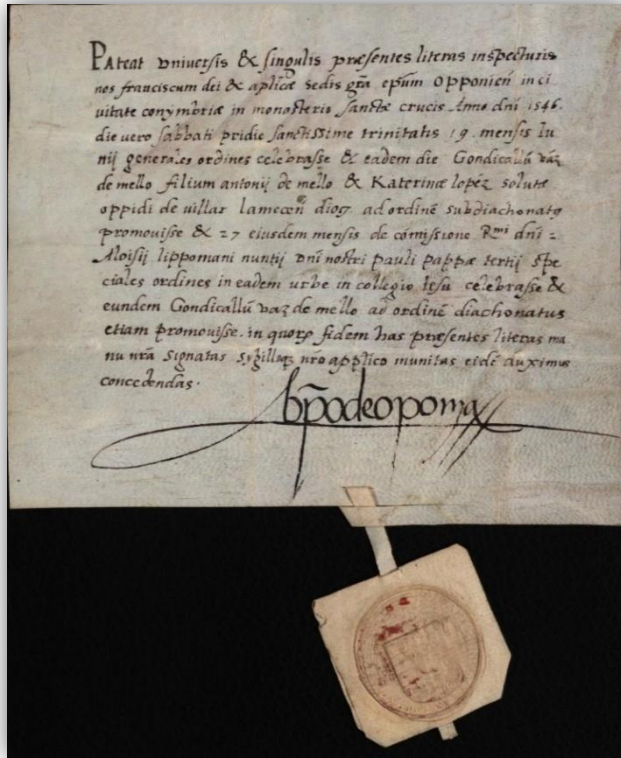 Pateat vniversis & singulis præsentes literas inspecturis
nos franciscum dei & aplicæ sedis grã epũm opponieñ in ci
uitate conymbriæ in monasterio sanctæ crucis Anno dñi 1546.
die vero sabbati pridie sanctissime trinitatis 19. mensis Iu
nij generales ordines celebrasse & eadem die Gondicallũ vaz
de mello filium antonij de mello & Katerinæ lopéz solutæ
oppidi de villar lameceñ dioç. ad ordinẽ subdiachonatq
promouisse & 27 eiusdem mensis de cõmissione Rmi dñi
Aloisij lippomani nuntij dñi nostri pauli pappæ tertij spe
ciales ordines in eadem urbe in collegio Iesu celebrasse &
eundem Gondicallũ vaz de mello ad ordinẽ diachonatus
etiam promouisse. in quorũ fidem has præsentes literas ma
nu nrã signatas sygillaq nrõ applico munitas eidẽ duximus
concedendas.